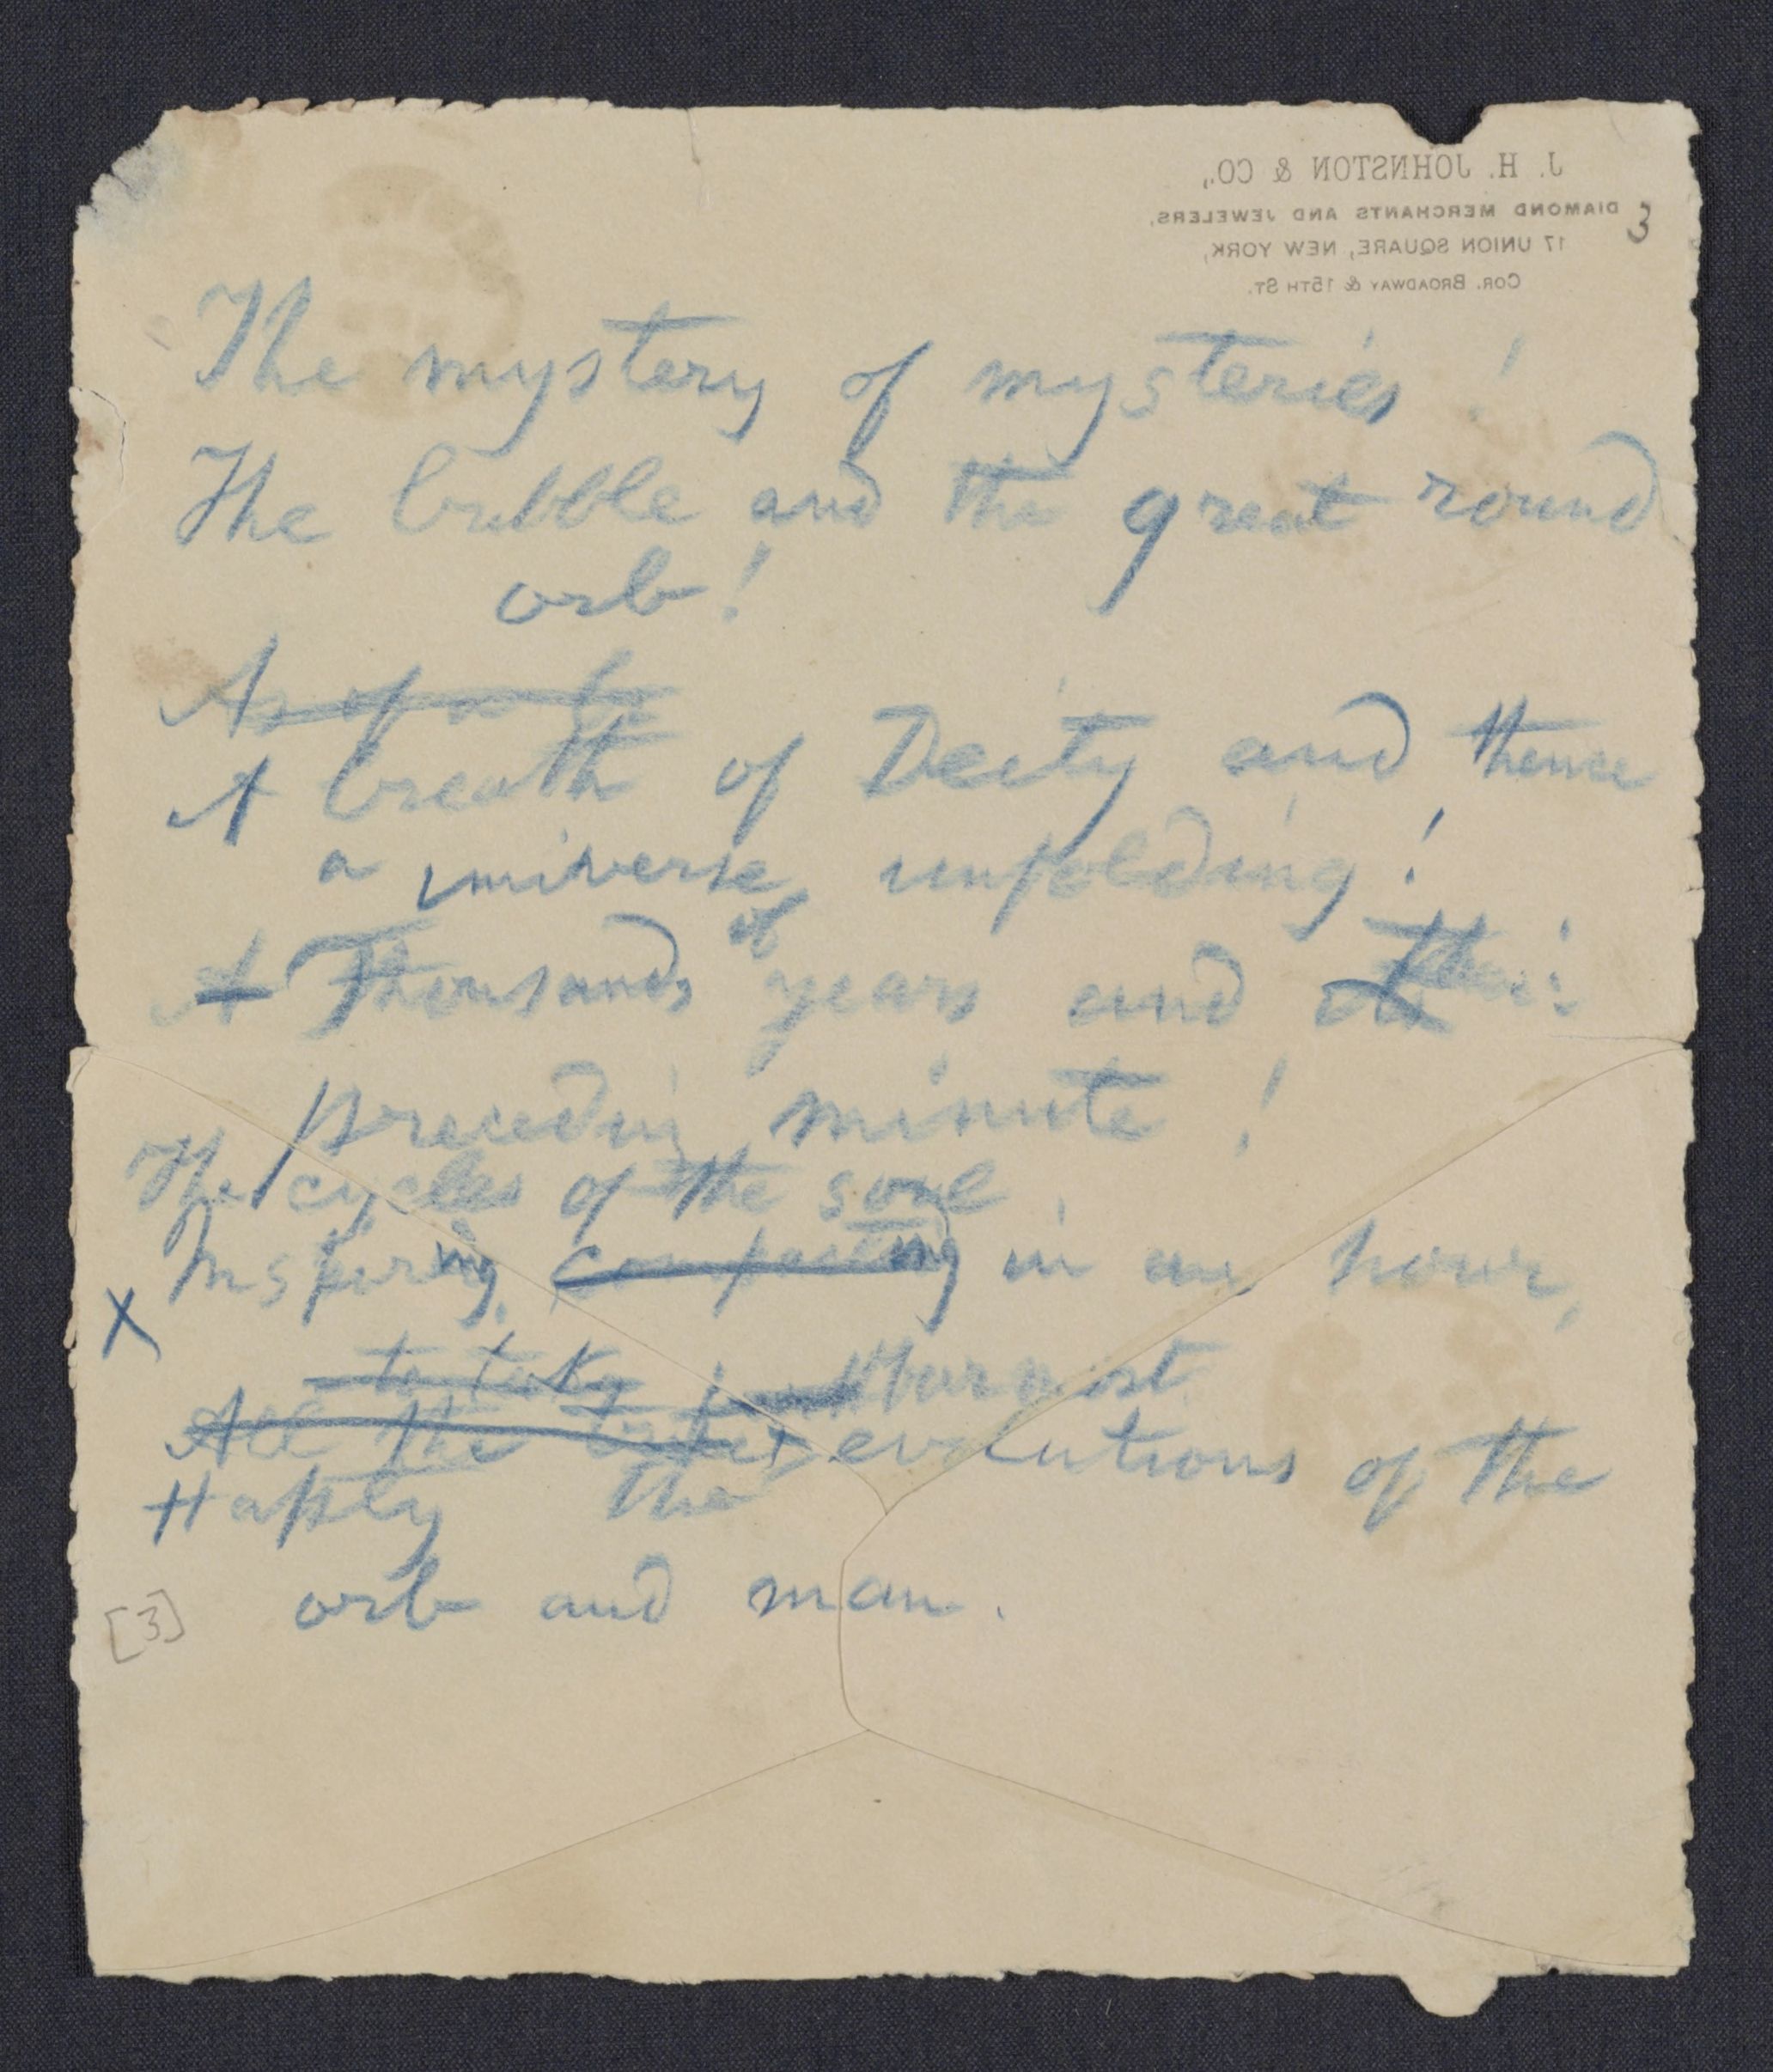 J. H. JOHNSTON & CO.,
DIAMOND MERCHANTS AND JEWELERS,
17 UNION SQUARE, NEW YORK,
COR. BROADWAY & 15TH ST.
3
The mystery of mysteries!
The bubble and the great round
orb!
As of a
A breath of Deity and thence
a universe unfolding!
of
A Thousands years and their
preceding minute!
The cycles of the soul
Inspiring composing in an hour,
X
to take
All the evolutions of the
Haply the
orb and man.
[3]